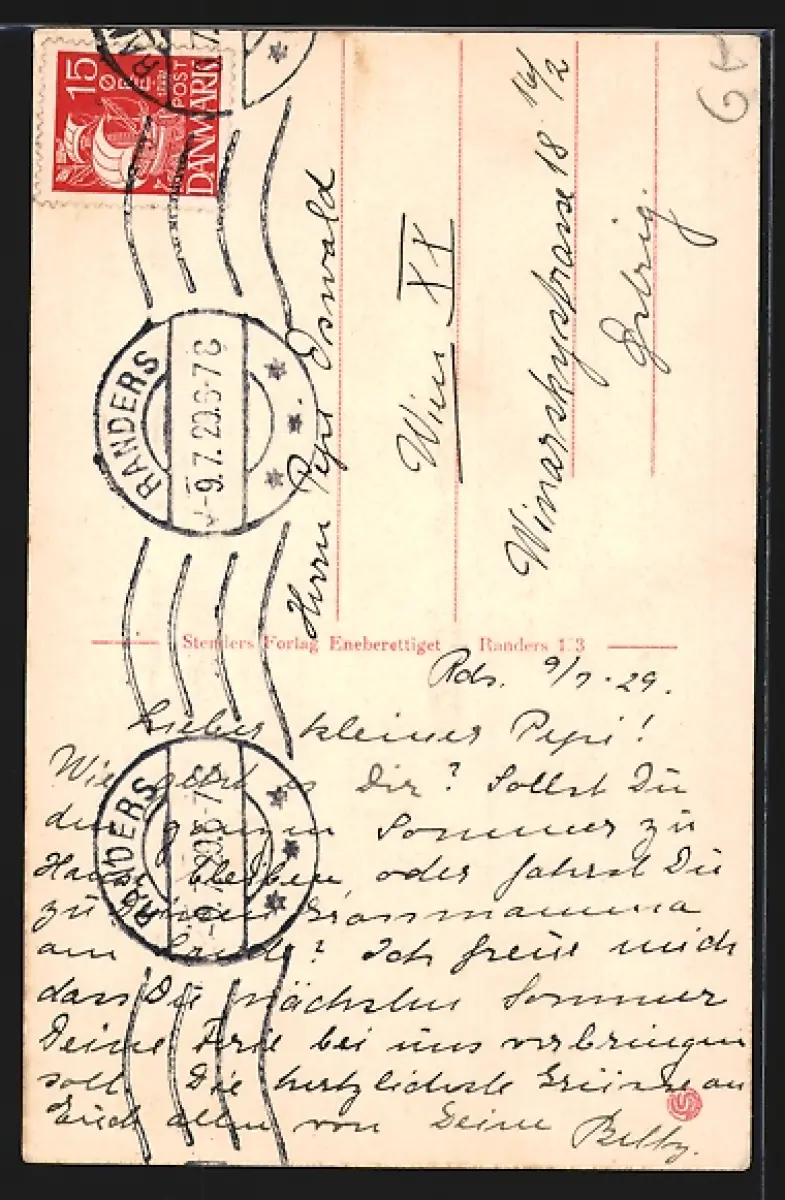 15
ØRE
POST
DANMARK
RANDERS
-9.7.29.6-7
RANDERS
Herrn Pepi Oswald
Wien XX
Winarskystrasse 18 16/2
Østrig.
Stenders Forlag Eneberettiget Randers
Rds. 9/7.29.
Lieber kleiner Pepi!
Wie geht es Dir? Sollst Du
den ganzen Sommer zu
Hause bleiben oder fahrst Du
zu Deinen Grossmamma
am Lande? Ich freue mich
dass Du nächsten Sommer
Deine Ferie bei uns verbringen
soll. Die hertzlichste Grüsse an
Euch allen von Deine